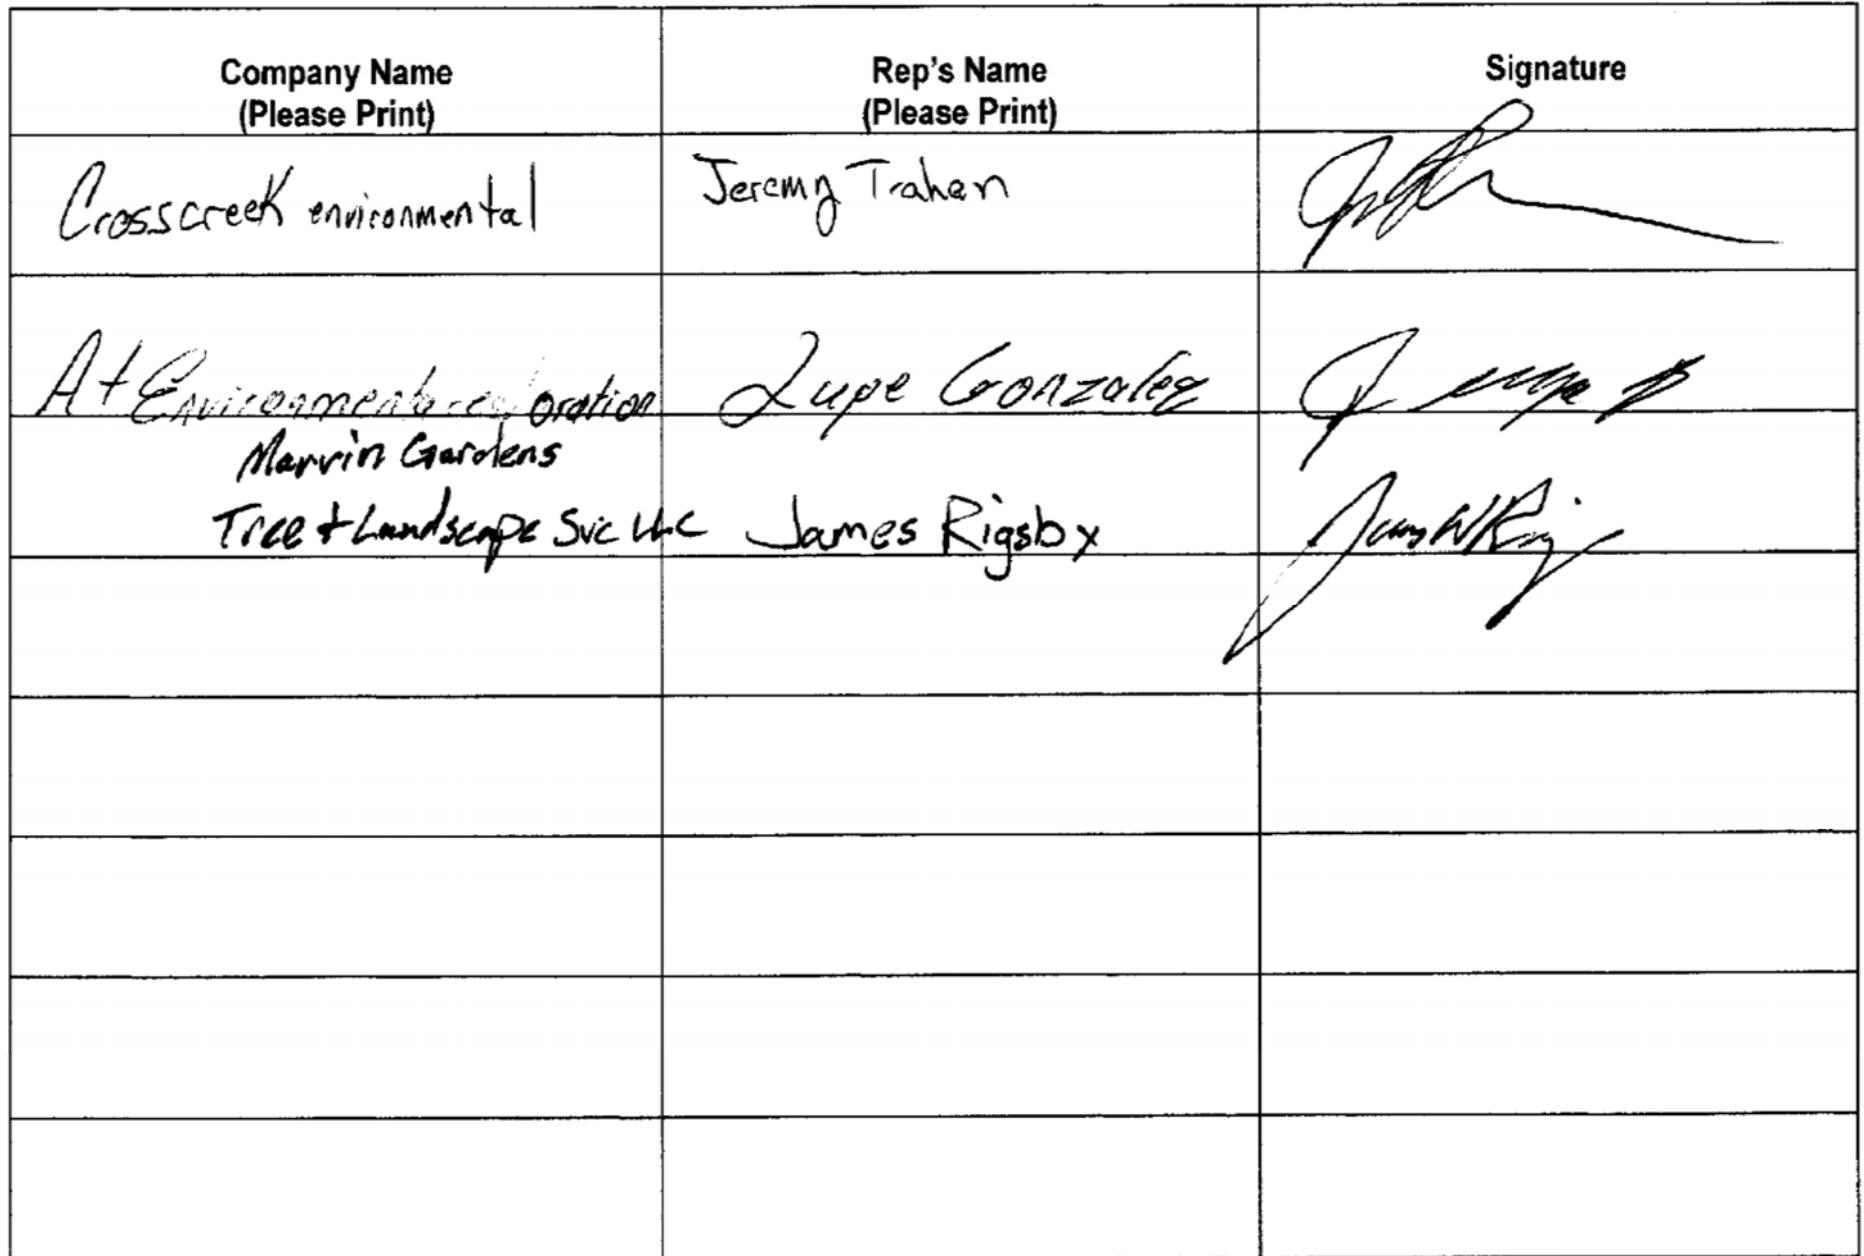 Company Name
(Please Print)
Rep's Name
(Please Print)
Signature
Crosscreek environmental
Jeremy Trahan
A+ Environmental
Lupe Gonzalez
Marvin Gardens
Tree + Landscape Svc LLC
James Rigsby